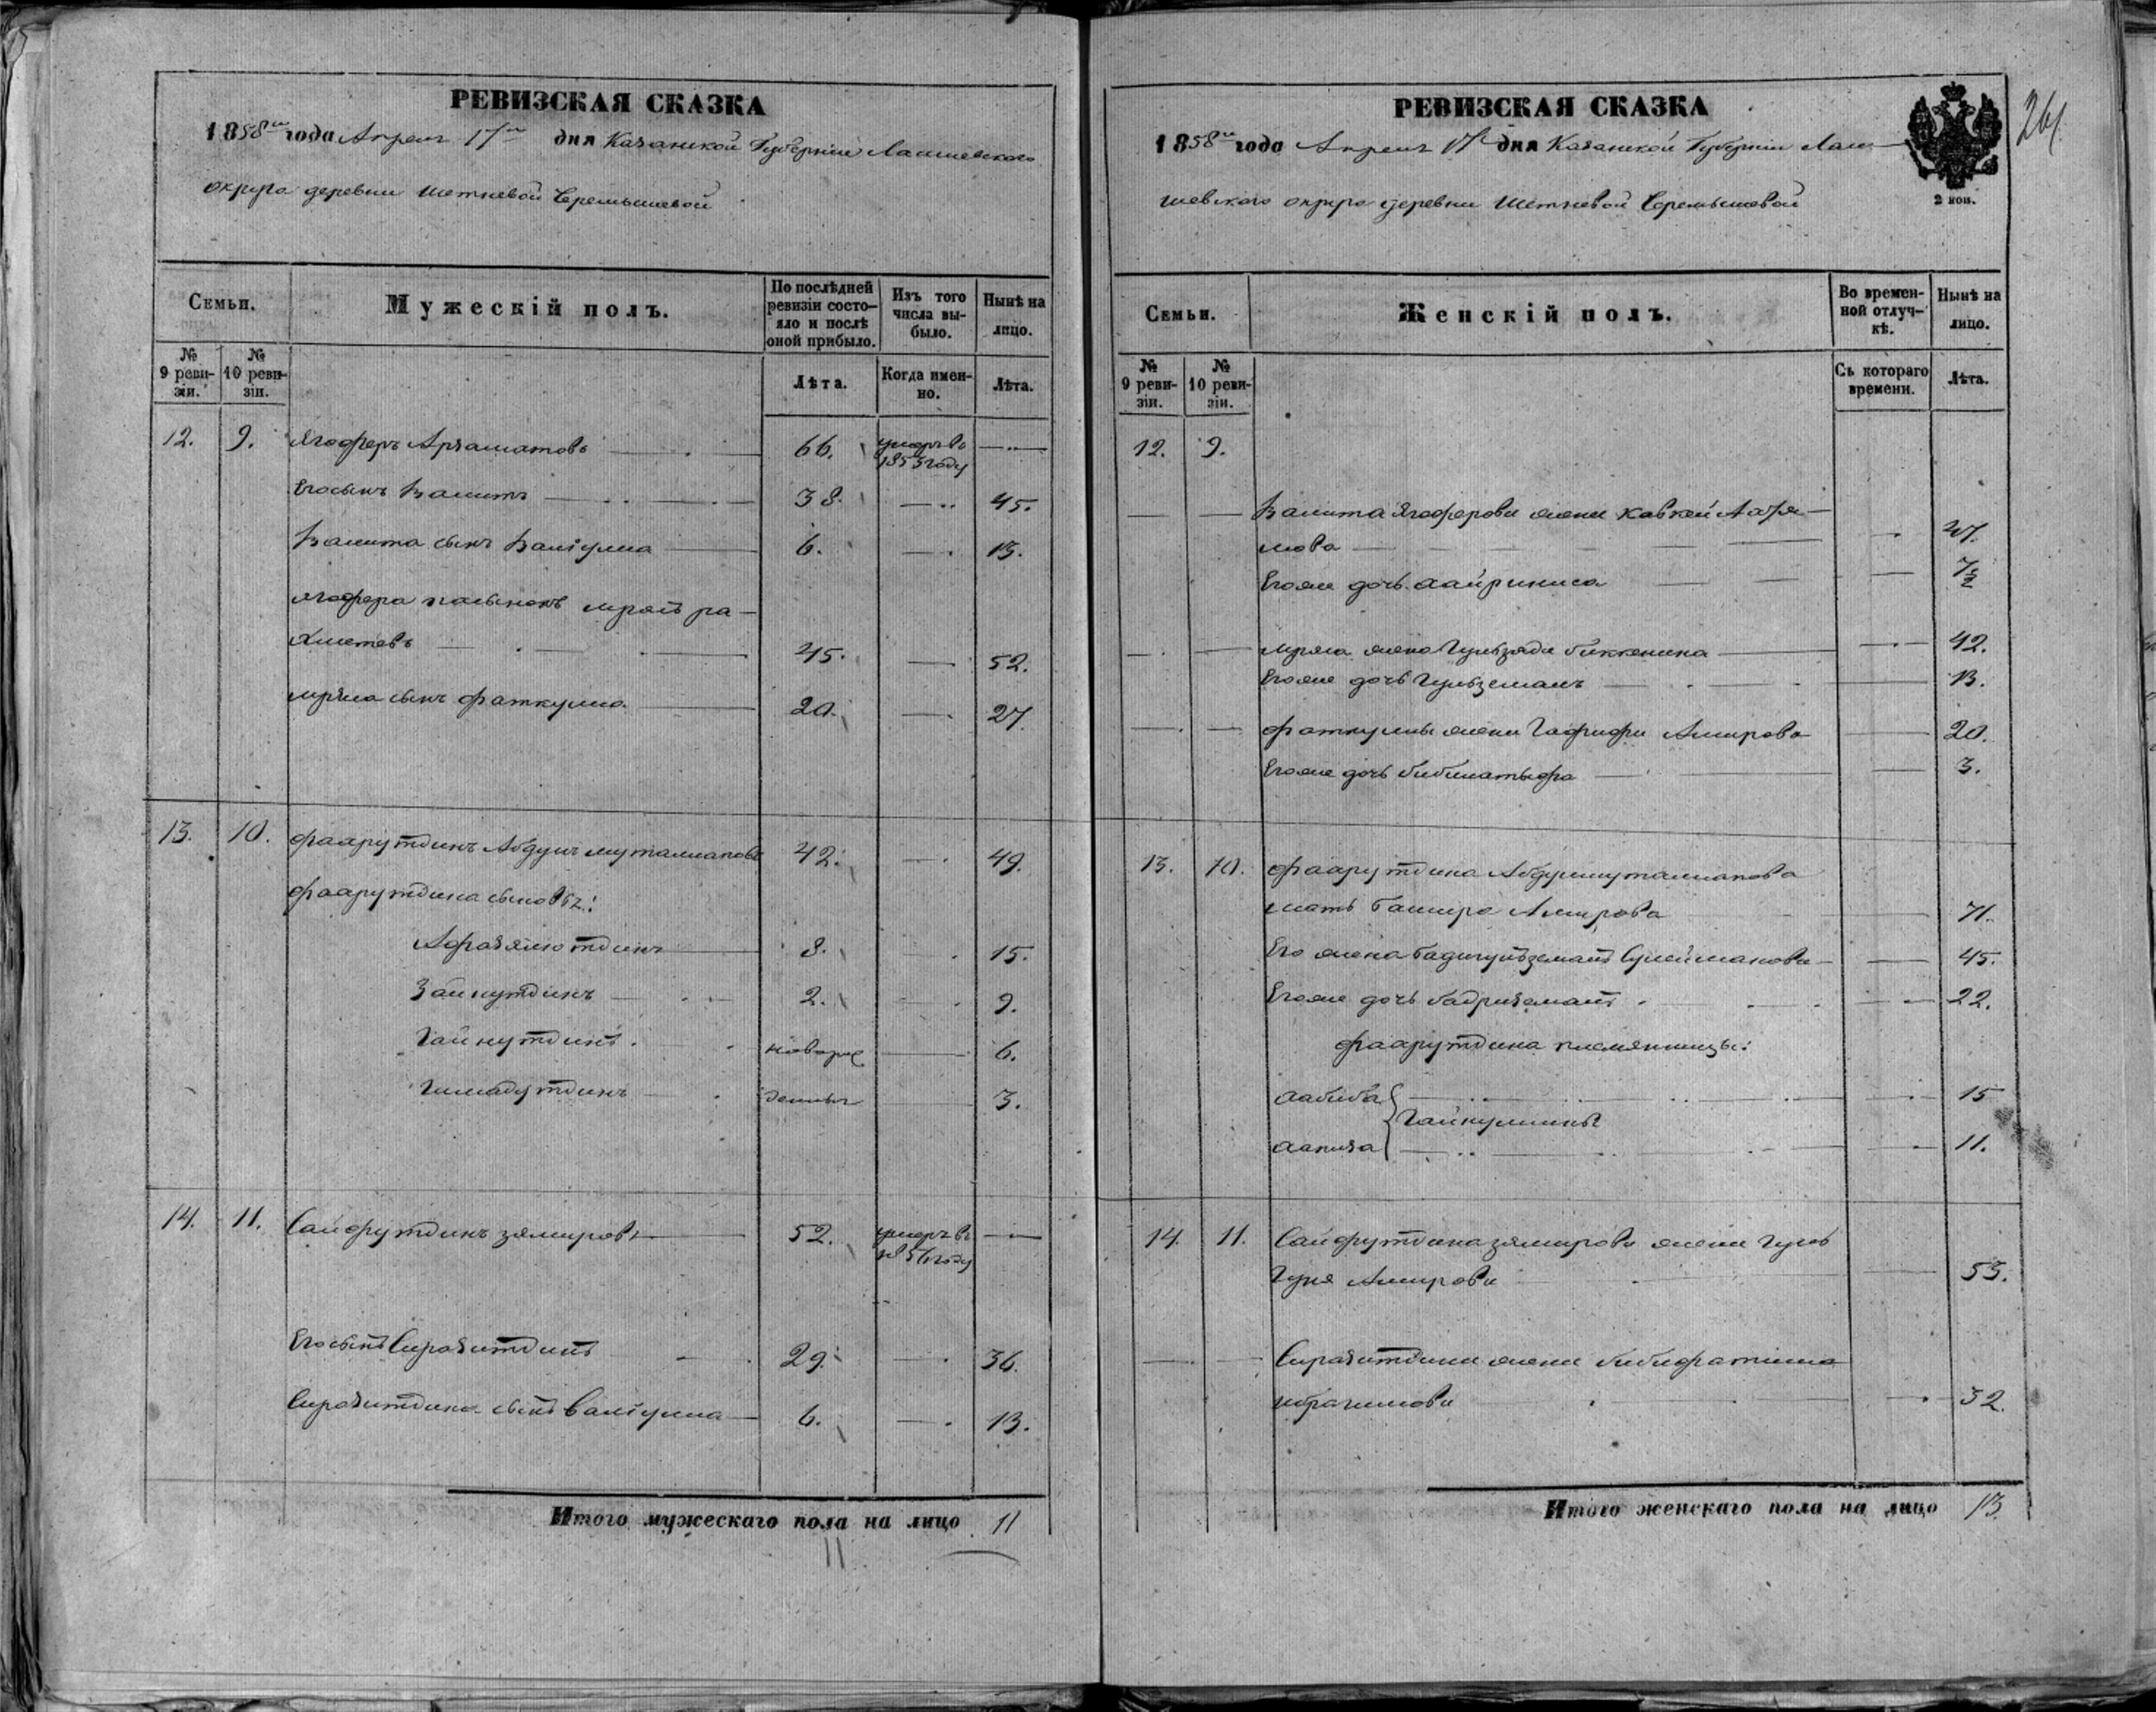 РЕВИЗСКАЯ СКАЗКА
1858го года Апреля 17го дня Казанской Губернии Лаишевского
округа деревни Шетневой Черемышевой
Семьи.
Мужескій полъ.
По послѣдней ревизіи состо-яло и послѣ оной прибыло.
Изъ того числа вы-было.
Нынѣ на лицо.
№ 9 реви-зіи.
№ 10 реви-зіи.
Лѣта.
Когда имен-но.
Лѣта.
12. 9. Ягоферъ 66. умеръ въ 1853 году
Его сынъ Валитъ 38. 45.
Валита сынъ Валіулла 6. 13.
Ягофера пасынокъ ра-
хметевъ 45. 52.
сынъ Фаткулла 20. 27.
13. 10. Фаарутдинъ Абдулмуталлаповъ 42. 49.
Фаарутдина сыновья:
8. 15.
Зайнутдинъ 2. 9.
Гайнутдинъ новорож 6.
Гимадутдинъ денныя 3.
14. 11. Сайфутдинъ Зямировъ 52. умеръ въ 1856 году
Его сынъ Сиразитдинъ 29. 36.
Сиразитдина сынъ Валіулла 6. 13.
Итого мужескаго пола на лицо 11
11
РЕВИЗСКАЯ СКАЗКА
1858го года Апреля 17го дня Казанской Губернии Лаи-
шевского округа деревни Шетневой Черемышевой
2 коп.
261
Семьи.
Женскій полъ.
Во времен-ной отлуч-кѣ.
Нынѣ на лицо.
№ 9 реви-зіи.
№ 10 реви-зіи.
Съ котораго времени.
Лѣта.
12. 9.
Валита Ягоферова жена
мова
Его же дочь
жена Биккенина 42.
Его же дочь Гульземалъ 13.
Фаткуллы жена Гафифа Амирова 20.
Его же дочь 3.
13. 10. Фаарутдина Абдулмуталлапова
мать Башира Амирова 71.
Его жена Сулейманова 45.
Его же дочь Бадриземалъ 22.
Фаарутдина племянницы:
Хабиба 15
Гайнуллины
11.
14. 11. Сайфутдина Зямирова жена Гуль
Амирова 53.
Сиразитдина жена Бибифатима
Ибрагимова 32.
Итого женскаго пола на лицо 13.